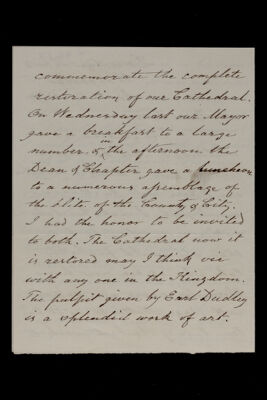 commemorate the complete
restoration of our Cathedral.
On Wednesday last our Mayor
gave a breakfast to a large
number & in the afternoon the
Dean & Chapter gave a luncheon
to a numerous assemblage of
the élite of the County & City.
I had the honor to be invited
to both. The Cathedral now it
is restored may I think vie
with any one in the Kingdom.
The pulpit given by Earl Dudley
is a splendid work of art.